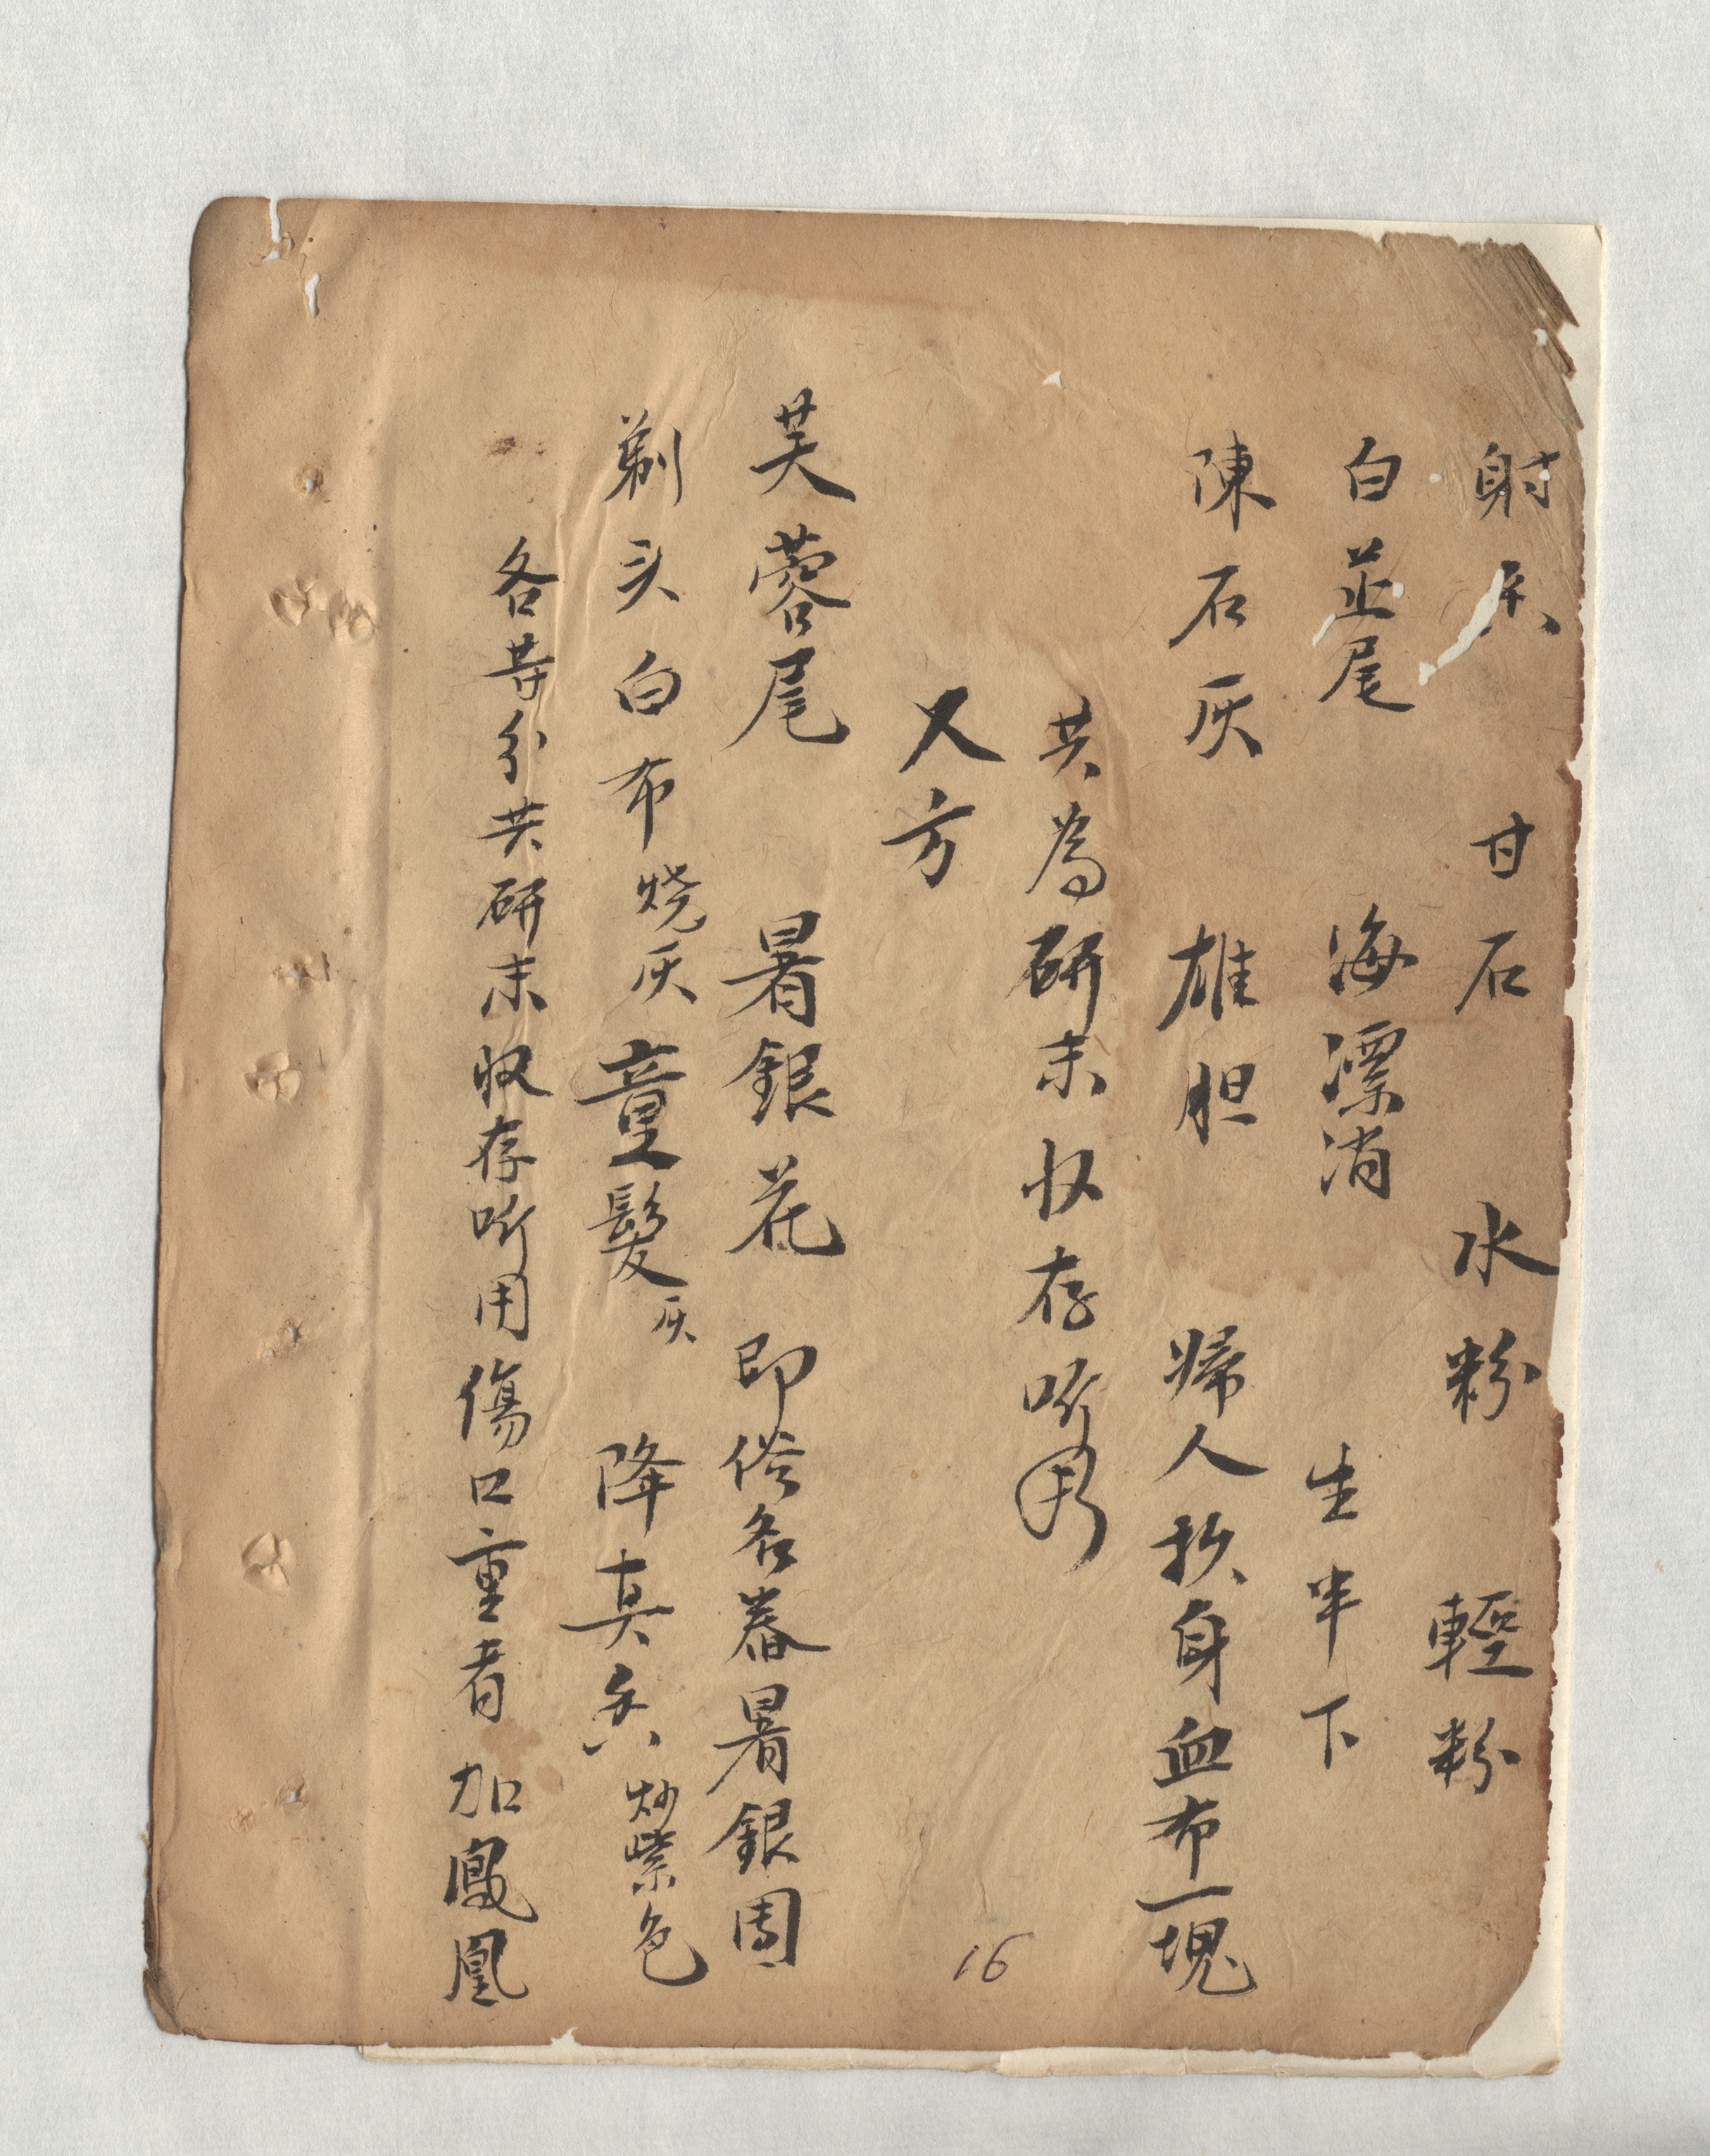 射香 甘石 水粉 輕粉
白芷尾 海漂消 生半下
陳石灰 雄胆 婦人扒身血布一塊
共為研末收存听用
又方
芙蓉尾 暑銀花 即俗名蕃暑銀
剃头白布烧灰 童髮灰 降真香炒紫色
各等分共研末收存听用傷口重者加鳳凰
16